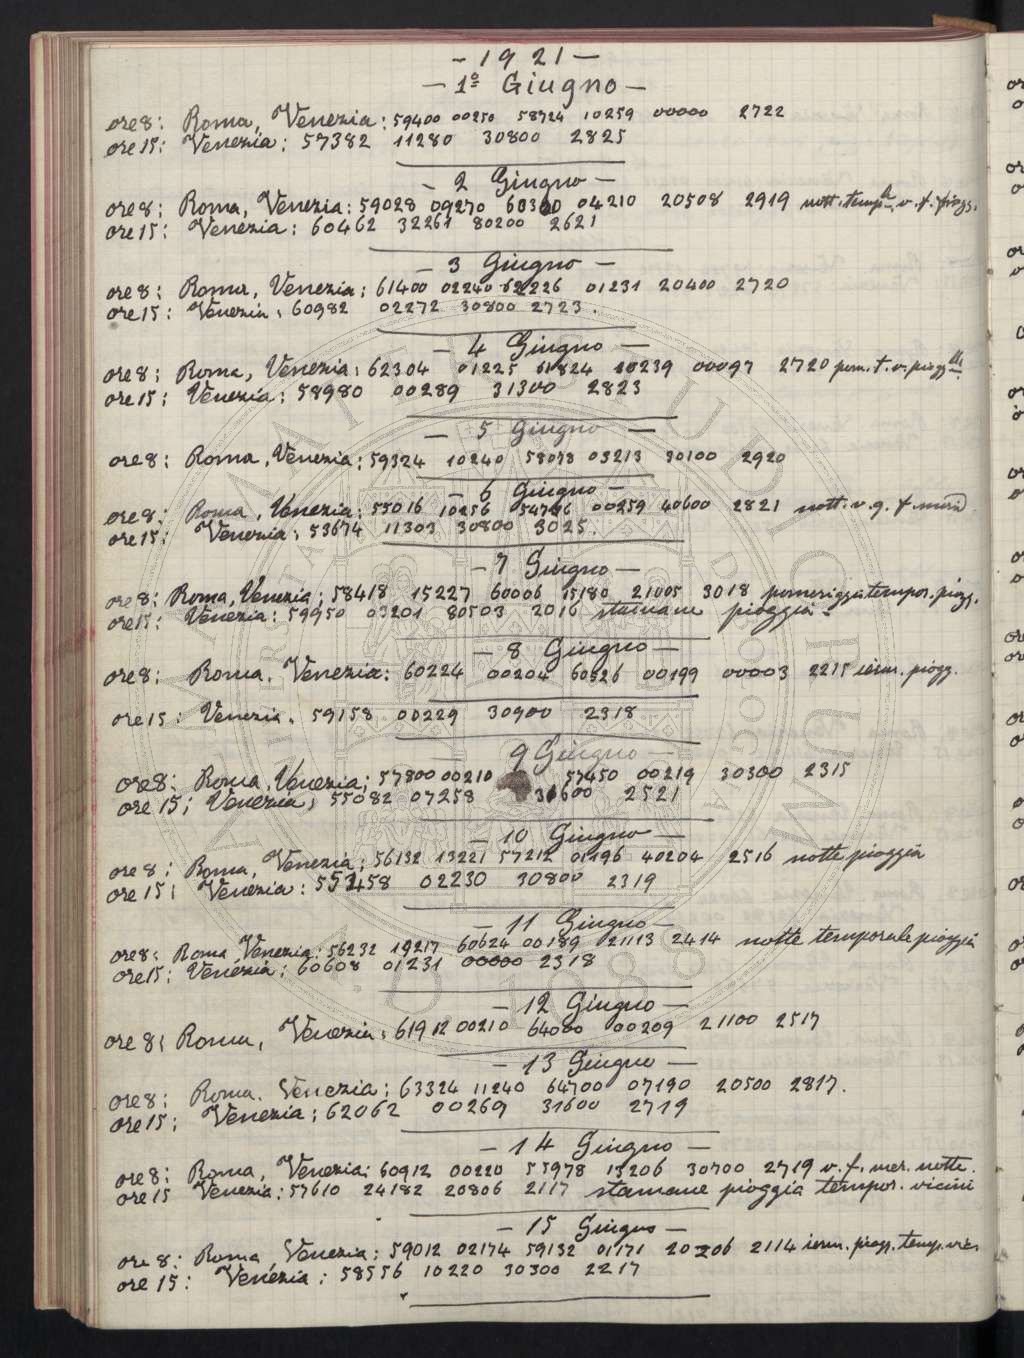 - 1921 -
- 1º Giugno -
ore 8: Roma, Venezia: 59400 00250 58724 10259 00000 2722
ore 15: Venezia: 57382 11280 30800 2825
- 2 Giugno -
ore 8: Roma, Venezia: 59028 09270 60360 04210 20508 2919 nott. temp.le v. f. piogg.
ore 15: Venezia: 60462 32261 80200 2621
- 3 Giugno -
ore 8: Roma, Venezia: 61400 02240 62226 01231 20400 2720
ore 15: Venezia: 60982 02272 30800 2723.
- 4 Giugno -
ore 8: Roma, Venezia: 62304 01225 61824 10239 00097 2720 pom. t. v. piogg
ore 15: Venezia: 58980 00289 31300 2823
- 5 Giugno -
ore 8: Roma, Venezia: 59324 10240 58078 03213 30100 2920
- 6 Giugno -
ore 8: Roma, Venezia: 55016 10256 54746 00259 40600 2821 nott. v. g. f.
ore 15: Venezia: 53674 11303 30800 3025.
- 7 Giugno -
ore 8: Roma, Venezia: 58418 15227 60006 15180 21005 3018 pomeriggio tempor. piogg.
ore 15: Venezia: 59950 03201 80503 2016 stamane pioggia
- 8 Giugno -
ore 8: Roma, Venezia: 60224 00204 60526 00199 00003 2215 iern. piogg.
ore 15: Venezia. 59158 00229 30900 2318
- 9 Giugno -
ore 8: Roma, Venezia: 57800 00210 57450 00219 30300 2315
ore 15; Venezia; 55082 07258 31600 2521
- 10 Giugno -
ore 8: Roma, Venezia; 56132 13221 57212 01196 40204 2516 notte pioggia
ore 15: Venezia: 55458 02230 30800 2319
- 11 Giugno -
ore 8: Roma Venezia: 56232 19217 60624 00189 21113 2414 notte temporale pioggia
ore 15: Venezia: 60608 01231 00000 2318
- 12 Giugno -
ore 8: Roma, Venezia: 61912 00210 64000 00209 21100 2517
- 13 Giugno -
ore 8: Roma. Venezia: 63324 11240 64700 07190 20500 2817.
ore 15; Venezia; 62062 00269 31600 2719
- 14 Giugno -
ore 8: Roma, Venezia: 60912 00220 55978 13206 30700 2719 v. f. mer. notte.
ore 15 Venezia: 57610 24182 20806 2117 stamane pioggia tempor. vicini
- 15 Giugno -
ore 8: Roma, Venezia: 59012 02174 59132 01171 20206 2114 iern. piogg. temp. vic.
ore 15: Venezia: 58556 10220 30300 2217